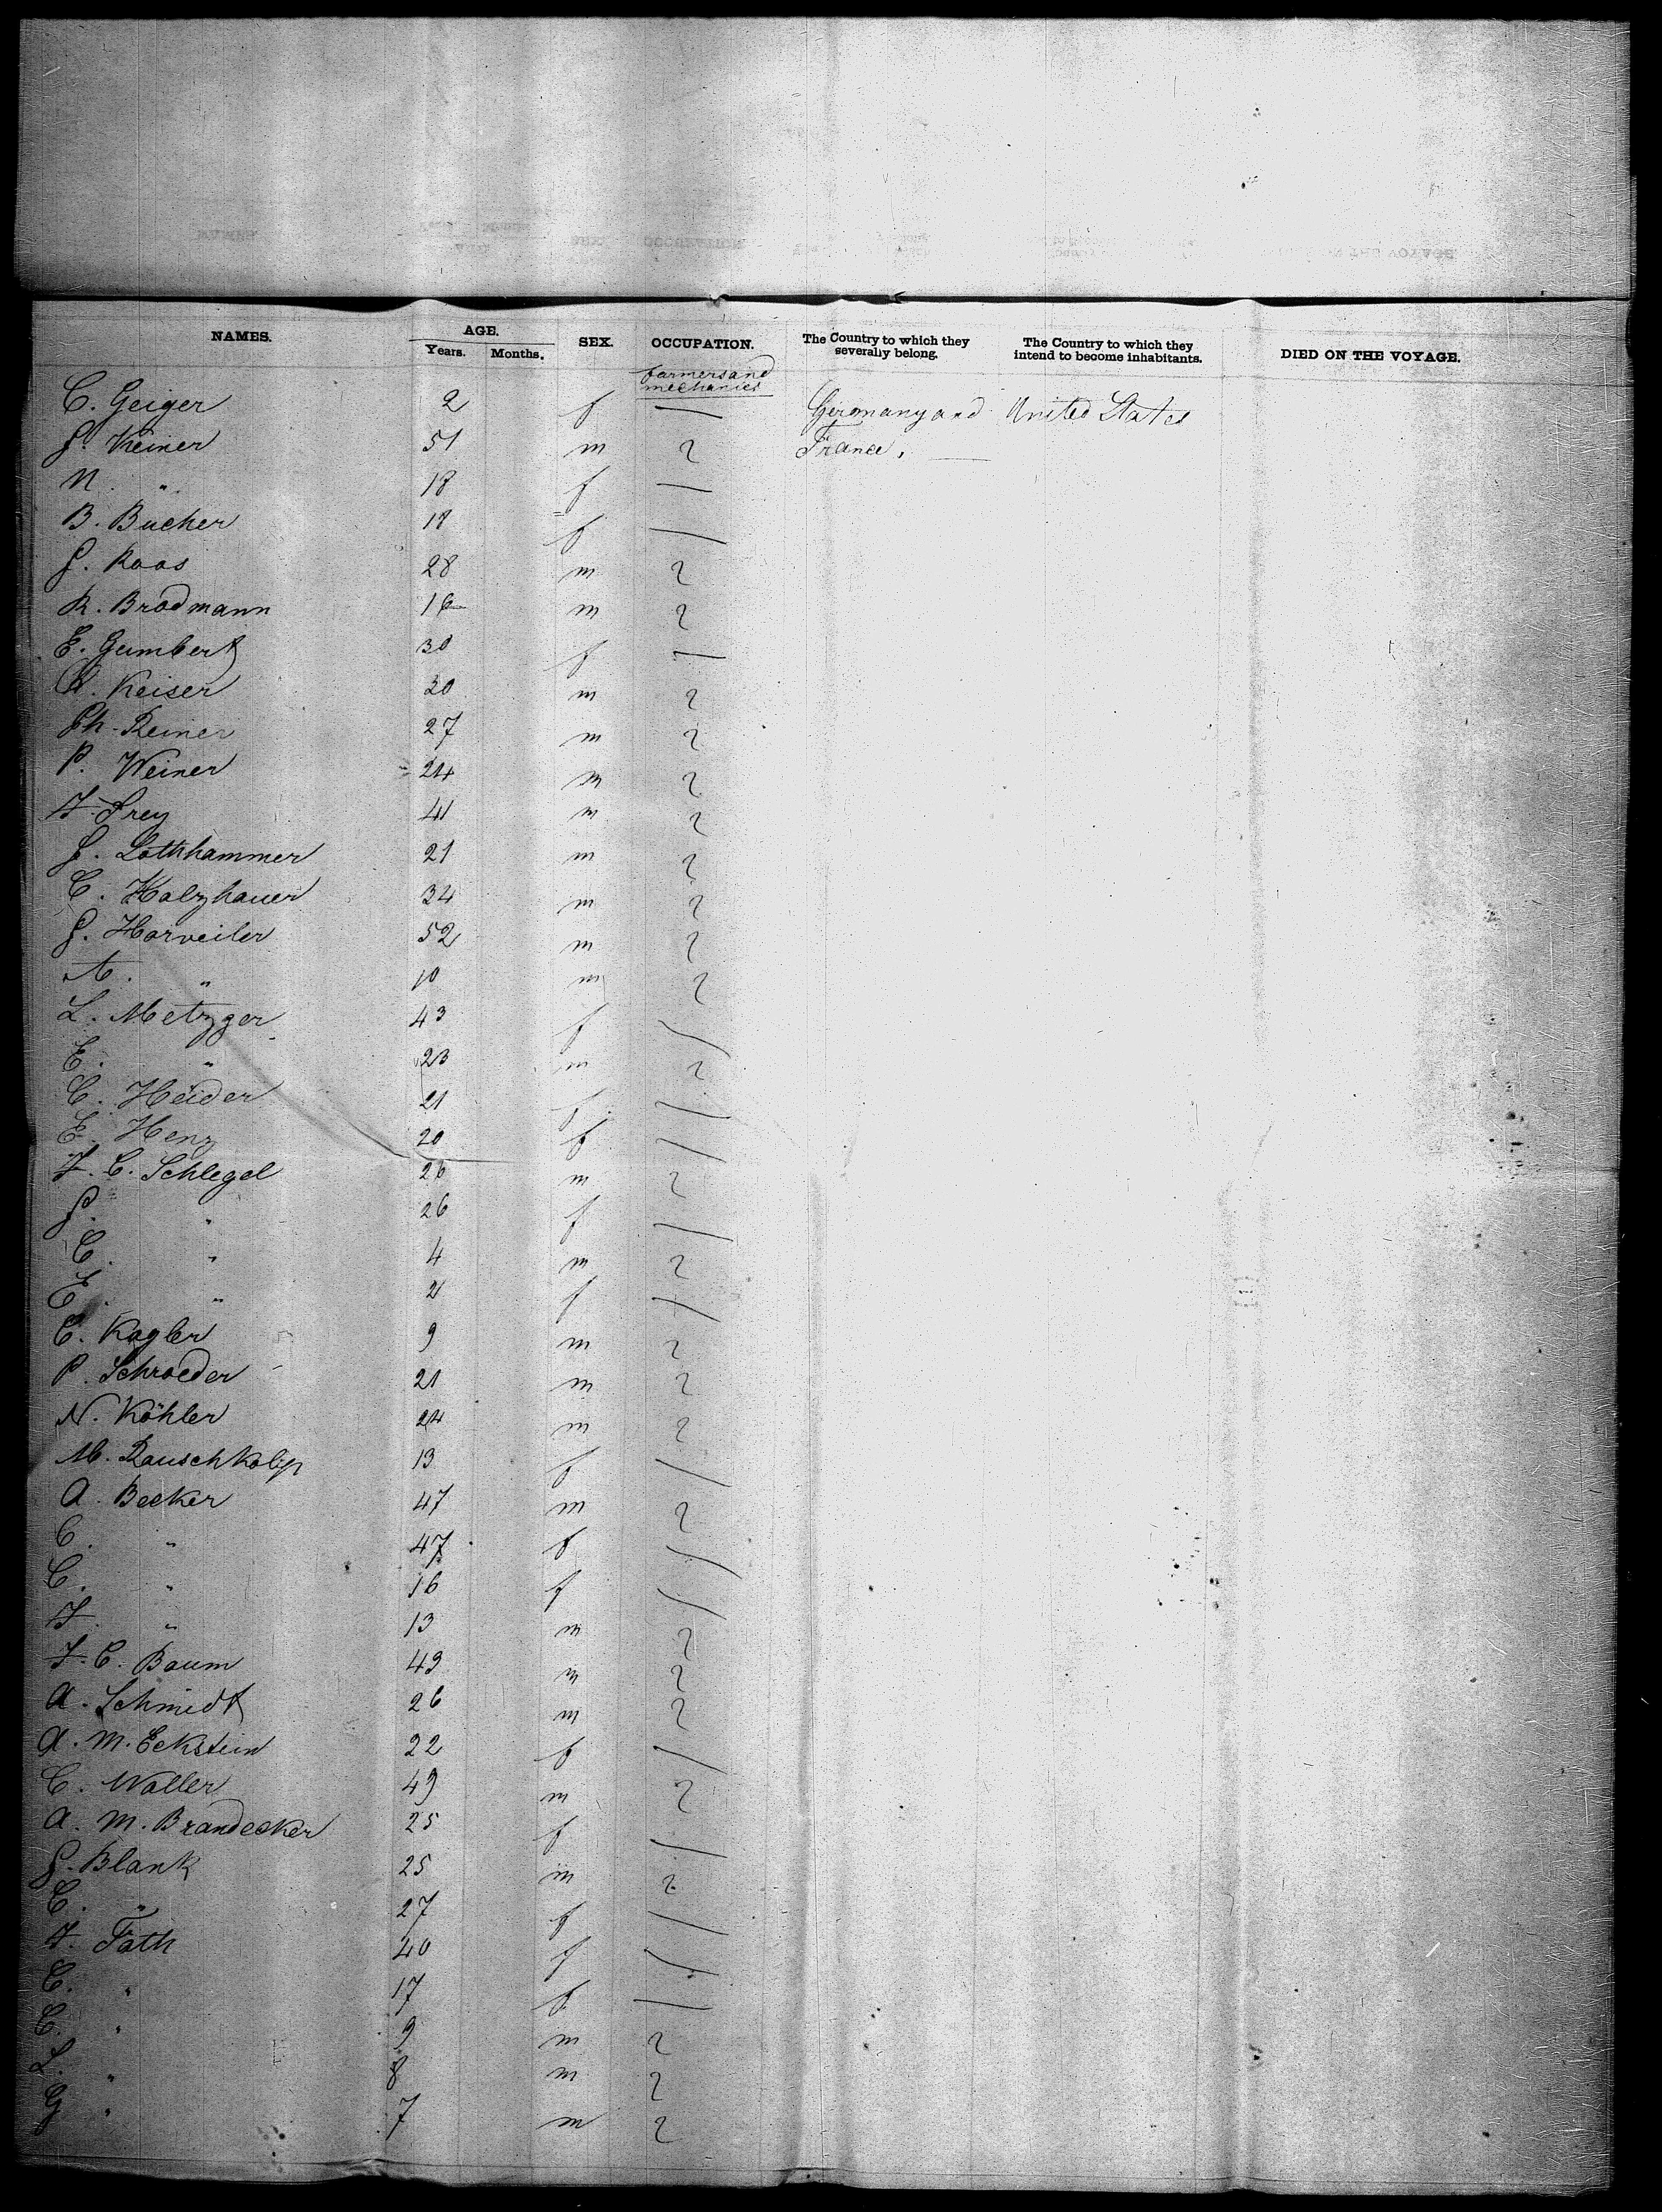 NAMES. AGE. SEX. OCCUPATION. The Country to which they severally belong. The Country to which they intend to become inhabitants. DIED ON THE VOYAGE.
Years. Months.
farmers and
mechanics
C. Geiger 2 f — Germany and United States
J. Keiner 51 m France, —
N. " 18 f —
B. Bucher 18 f —
J. Roos 28 m
R. Brodmann 16 m
E. Gumbert 30 f —
A. Keiser 30 m
Ph. Reiner 27 m
P. Weiner 24 m
F. Frey 41 m
J. Lothhammer 21 m
C. Holzhauer 34 m
J. Horveiler 52 m
A. " 10 m
L. Metzger 43 f
E. " 23 m
C. Heider 21 f
E. Henz 20 f
F. C. Schlegel 26 m
J. " 26 f
C. " 4 m
E. " 2 f
C. Kogler 9 m
P. Schroeder 21 m
N. Köhler 24 m
M. Rauschkolip 13 f
A. Becker 47 m
C. " 47 f
C. " 16 f
F. " 13 m
F. C. Baum 49 m
A. Schmidt 26 m
A. M. Eckstein 22 f
C. Woller 49 m
A. M. Brandecker 25 f
J. Blank 25 m
C. " 27 f
F. Fath 40 f
C. " 17 f
C. " 9 m
L. " 8 m
G " 7 m